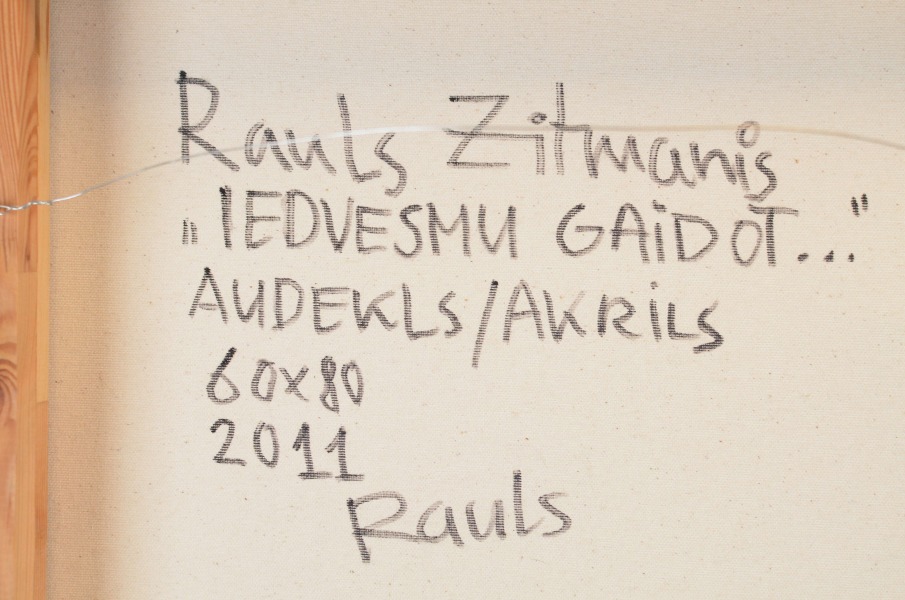 Rauls Zitmanis
„IEDVESMU GAiDOT..."
AUDEKLS/AKRiLS
60x80
2011
Rauls